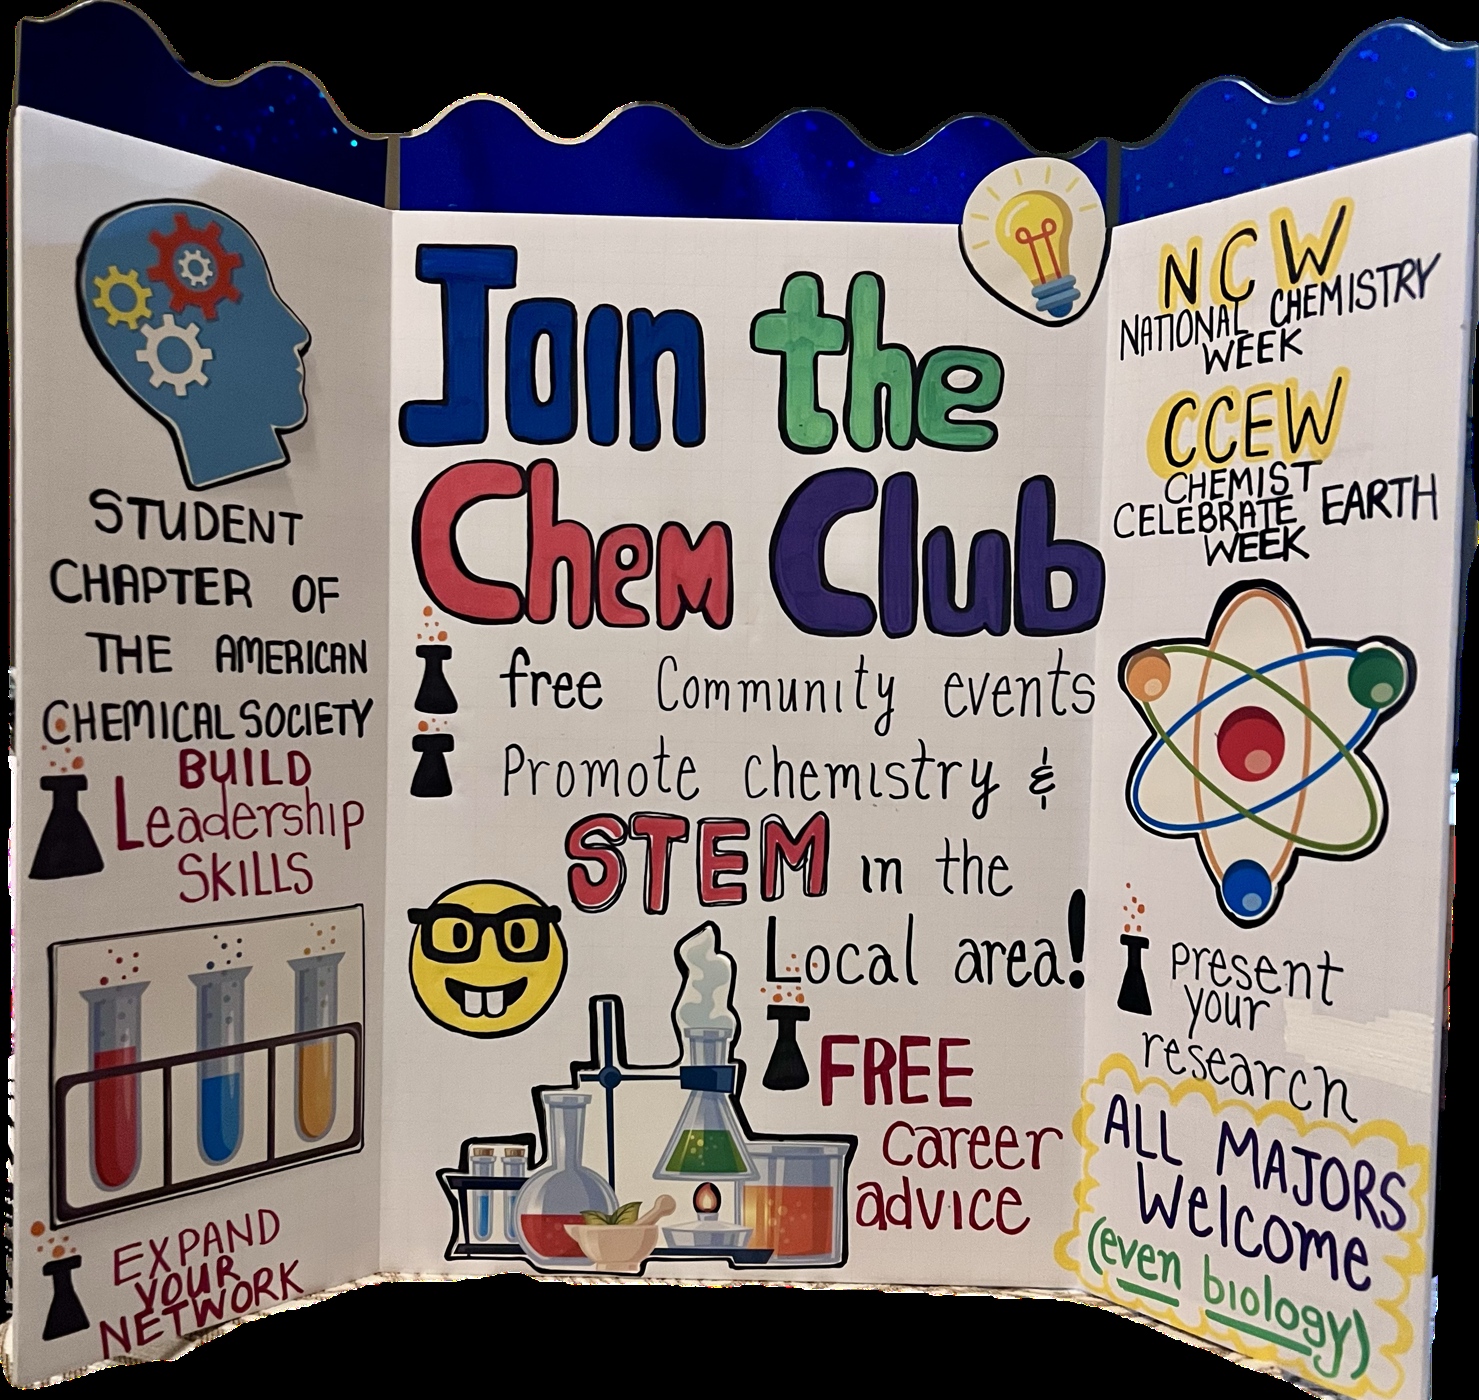 STUDENT
CHAPTER OF
THE AMERICAN
CHEMICAL SOCIETY
BUILD
Leadership
SKILLS
EXPAND
YOUR
NETWORK
Join the
Chem Club
free Community events
Promote chemistry &
STEM in the
Local area!
FREE
career
advice
NCW
NATIONAL CHEMISTRY
WEEK
CCEW
CHEMIST
CELEBRATE EARTH
WEEK
present
your
research
ALL MAJORS
Welcome
(even biology)